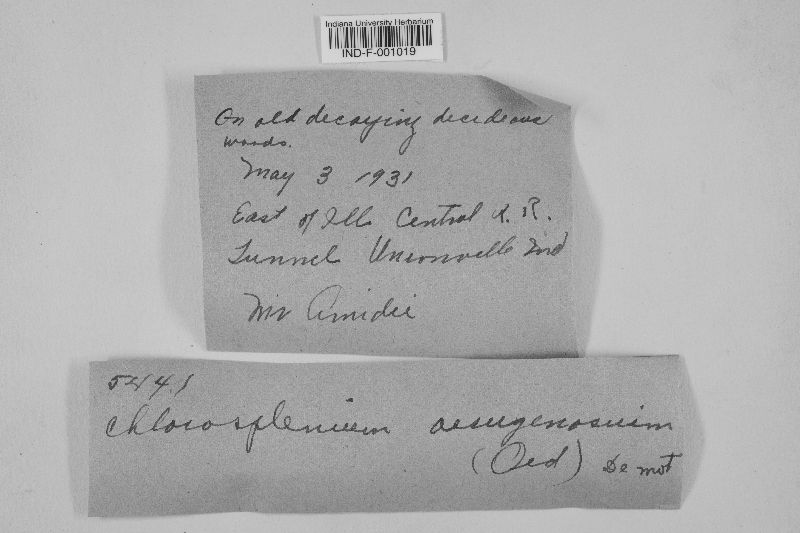 Indiana University Herbarium
IND-F-001019
On old decaying decideous
woods.
May 3 1931
East of Ill Central R. R.
Tunnel Unionville Ind
Mr Amidei
5441
Chlorosplenium aeruginosuim
(Oed) De not